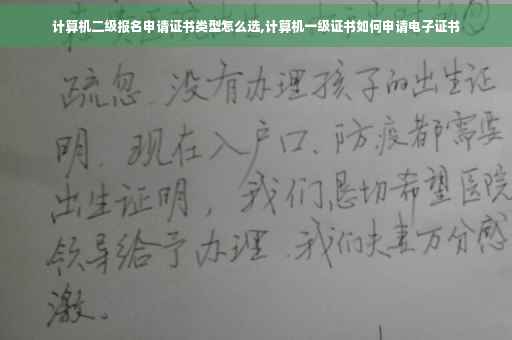 计算机二级报名申请证书类型怎么选,计算机一级证书如何申请电子证书
疏忽、没有办理孩子的出生证
明、现在入户口、防疫都需要
出生证明，我们恳切希望医院
领导给予办理、我们夫妻万分感
激。